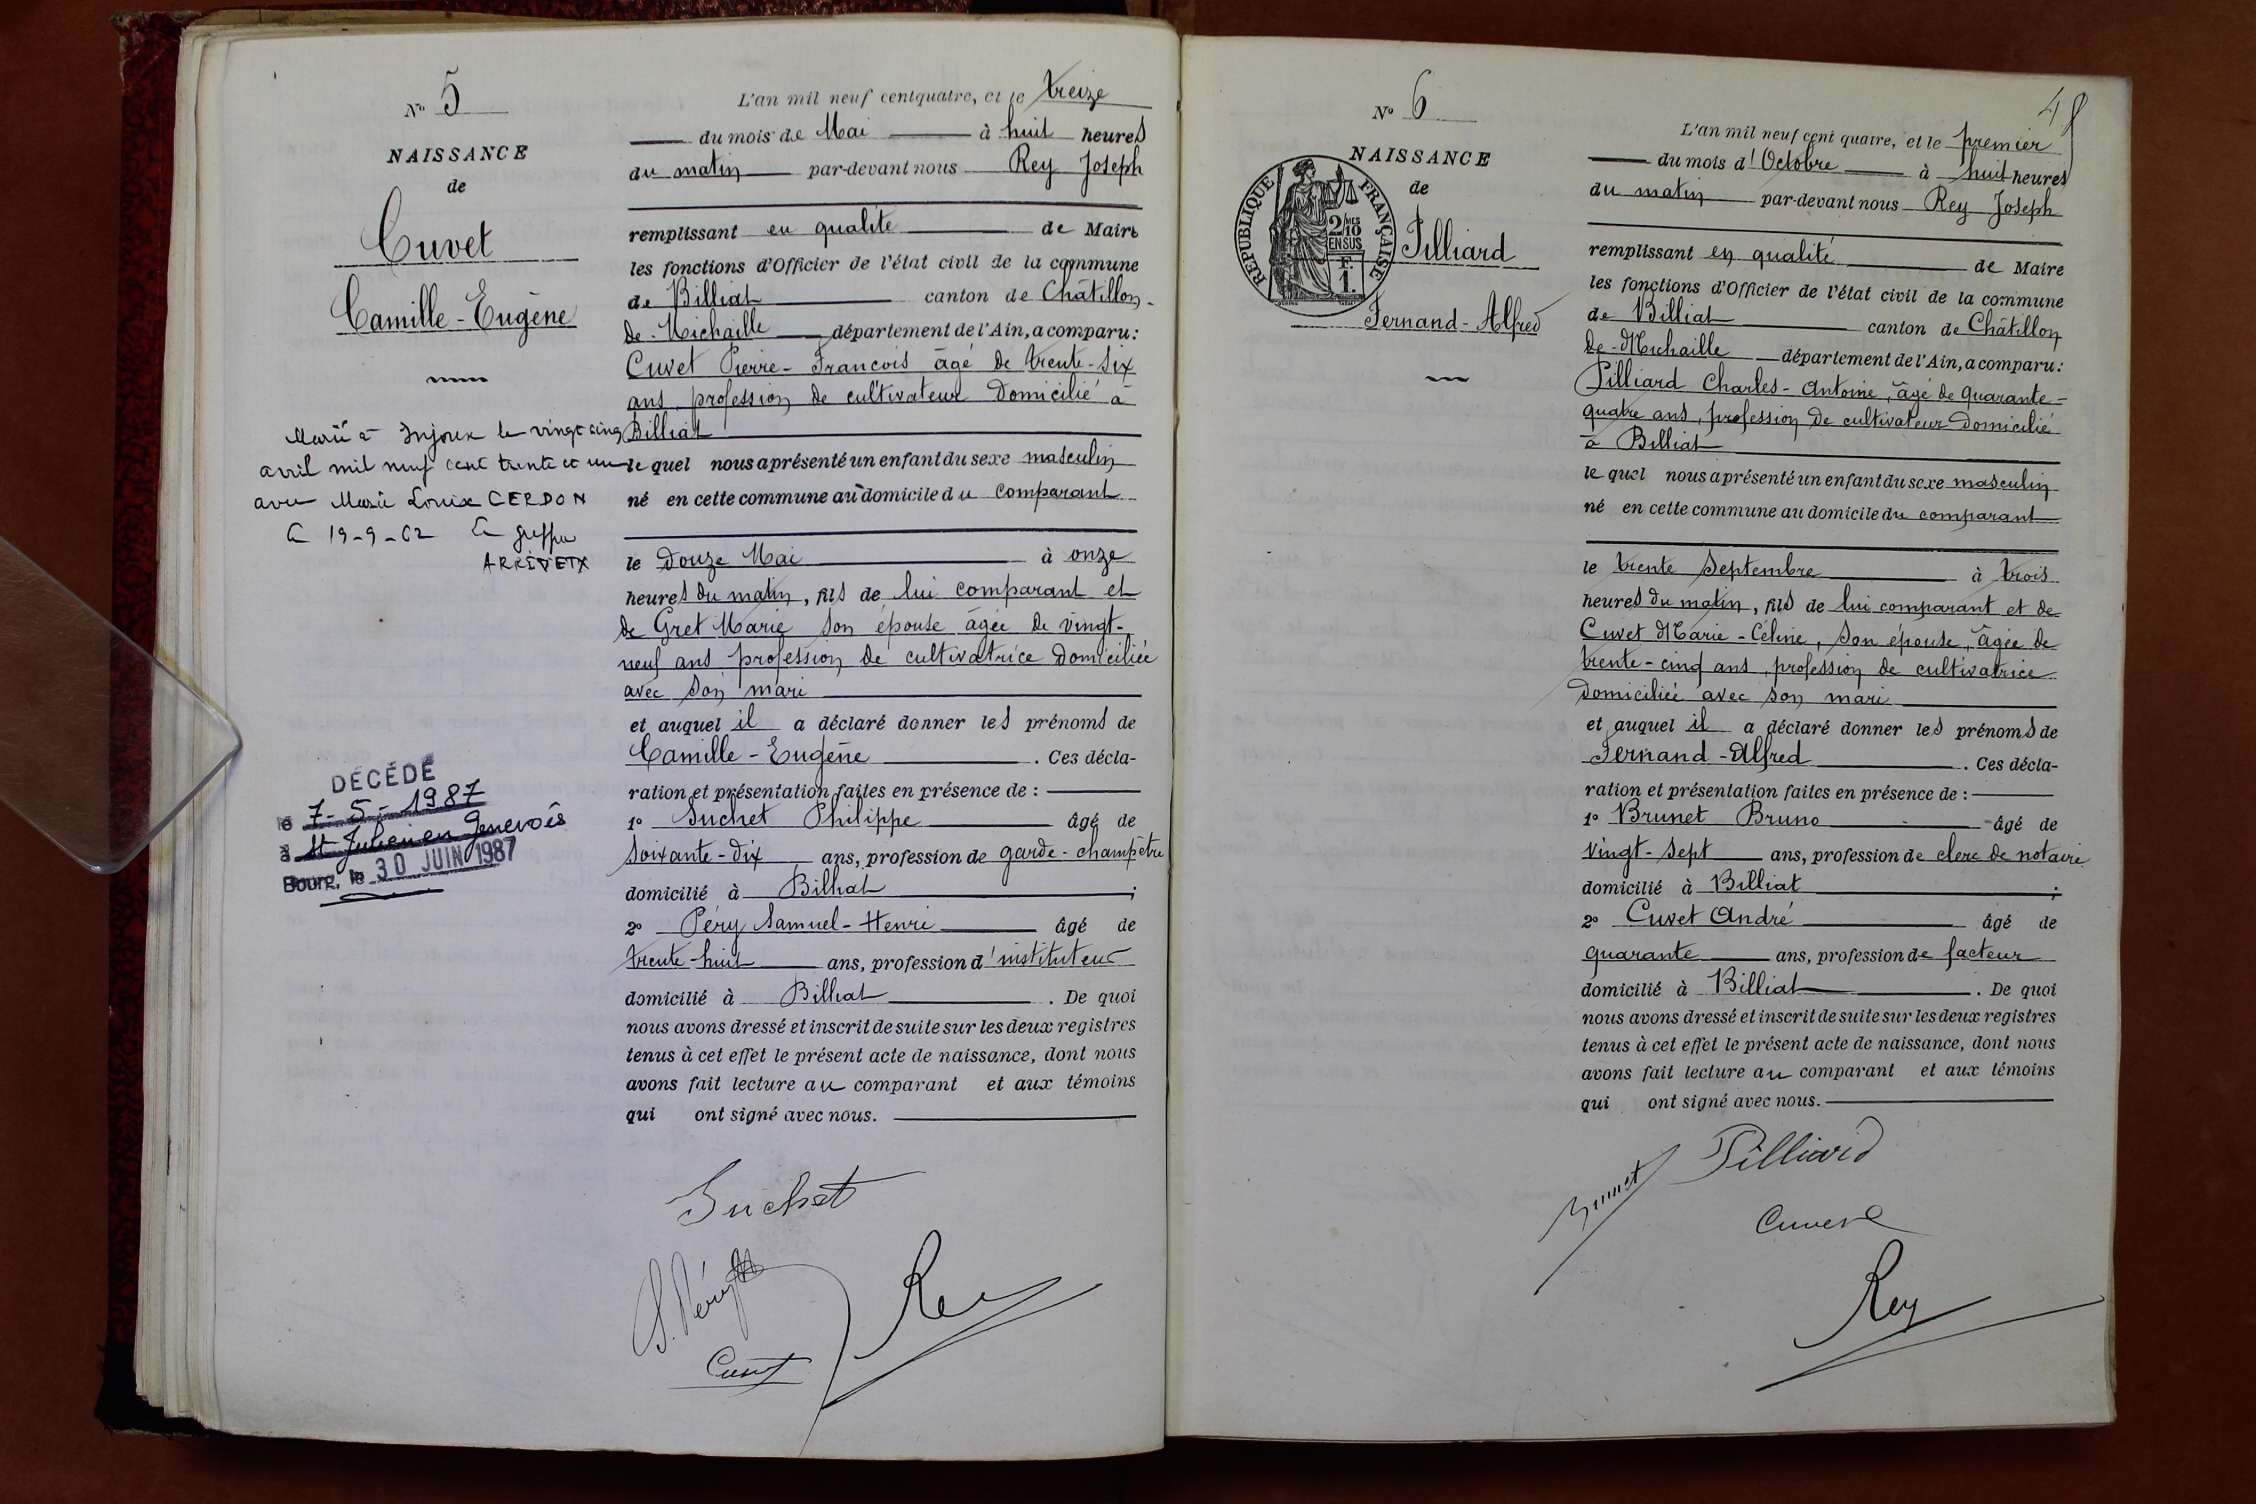 N° 5
NAISSANCE
de
Cuvet
Camille-Eugène
Marié à Injoux le vingt cinq
avril mil neuf cent trente et un
avec Marie Louise CERDON
Le 19-9-62 Le greffier
DÉCÉDÉ
le 7-5-1987
à St Julien en Genevois
Bourg, le 30 JUIN 1987
L'an mil neuf cent quatre, et le treize
du mois de Mai à huit heures
du matin par-devant nous Rey Joseph
remplissant en qualité de Maire
les fonctions d'Officier de l'état civil de la commune
de Billiat canton de Châtillon-
de-Michaille département de l'Ain, a comparu :
Cuvet Pierre-François âgé de trente-six
ans, profession de cultivateur domicilié à
Billiat
le quel nous a présenté un enfant du sexe masculin
né en cette commune au domicile du comparant
le douze Mai à onze
heures du matin, fils de lui comparant et
de Gret Marie son épouse âgée de vingt-
neuf ans profession de cultivatrice domiciliée
avec son mari
et auquel il a déclaré donner les prénoms de
Camille-Eugène. Ces décla-
ration et présentation faites en présence de :
1° Suchet Philippe âgé de
soixante-dix ans, profession de garde-champêtre
domicilié à Billiat ;
2° Péry Samuel-Henri âgé de
trente-huit ans, profession d'instituteur
domicilié à Billiat. De quoi
nous avons dressé et inscrit de suite sur les deux registres
tenus à cet effet le présent acte de naissance, dont nous
avons fait lecture au comparant et aux témoins
qui ont signé avec nous.
Suchet
S. Péry
Rey
Cuvet
48
N° 6
NAISSANCE
de
Pilliard
Fernand-Alfred
REPUBLIQUE FRANÇAISE
2/10 MES
EN SUS
F.
1.
L'an mil neuf cent quatre, et le premier
du mois d'Octobre à huit heures
du matin par-devant nous Rey Joseph
remplissant en qualité de Maire
les fonctions d'Officier de l'état civil de la commune
de Billiat canton de Châtillon
de-Michaille département de l'Ain, a comparu :
Pilliard Charles-Antoine, âgé de quarante-
quatre ans, profession de cultivateur domicilié
à Billiat
le quel nous a présenté un enfant du sexe masculin
né en cette commune au domicile du comparant
le trente Septembre à trois
heures du matin, fils de lui comparant et de
Cuvet Marie-Céline, son épouse, âgée de
trente-cinq ans, profession de cultivatrice
domiciliée avec son mari
et auquel il a déclaré donner les prénoms de
Fernand-Alfred. Ces décla-
ration et présentation faites en présence de :
1° Brunet Bruno âgé de
vingt-sept ans, profession de clerc de notaire
domicilié à Billiat ;
2° Cuvet André âgé de
quarante ans, profession de facteur
domicilié à Billiat. De quoi
nous avons dressé et inscrit de suite sur les deux registres
tenus à cet effet le présent acte de naissance, dont nous
avons fait lecture au comparant et aux témoins
qui ont signé avec nous.
Pilliard
Brunet
Rey